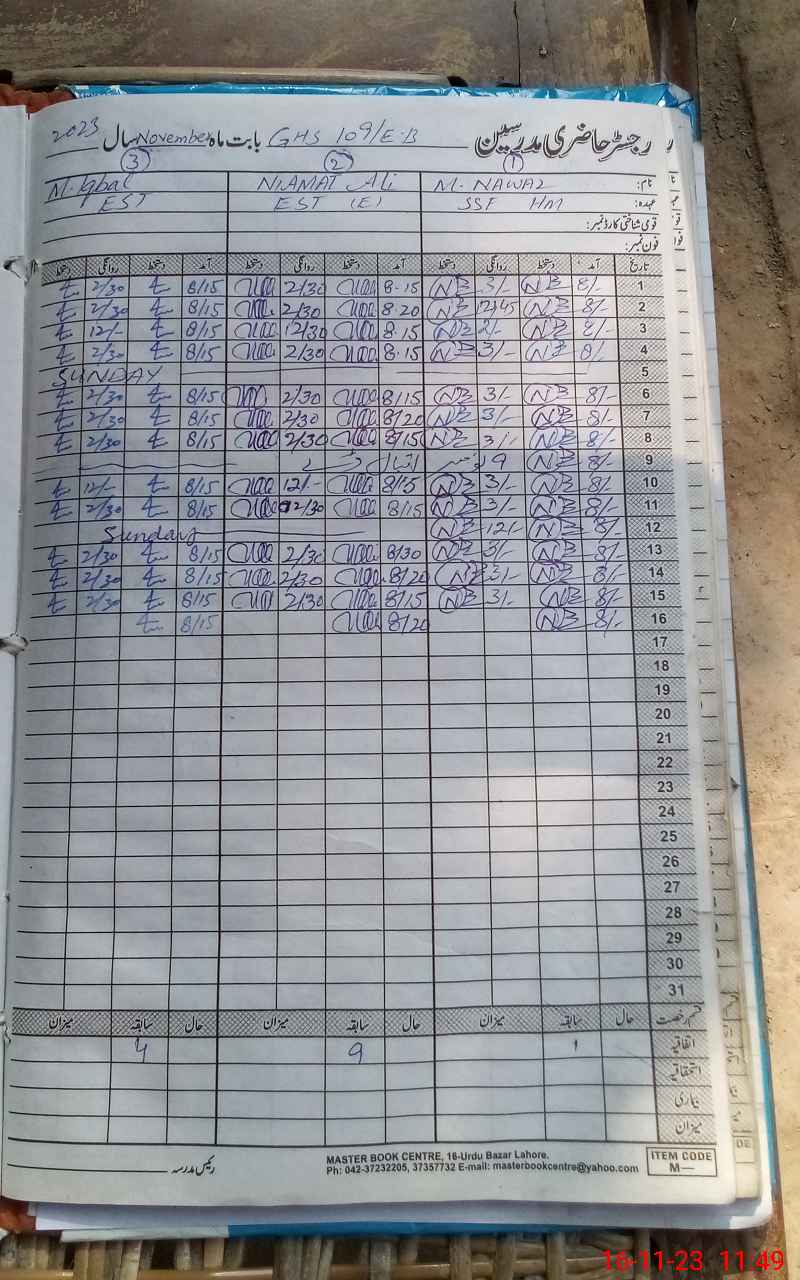 رجسٹر حاضری مدرسین GHS 109/E.B بابت ماہ November سال 2023
① ② ③
نام: M. NAWAZ NIAMAT Ali M. Iqbal
عہدہ: SSF HM EST (E) EST
قومی شناختی کارڈ نمبر:
فون نمبر:
تاریخ آمد دستخط روانگی دستخط آمد دستخط روانگی دستخط آمد دستخط روانگی دستخط
1 8/- NB 3/- NB 8.15 2/30 8/15 2/30
2 8/- NB 12/45 NB 8.20 2/30 8/15 2/30
3 8/- NB 2/- NB 8.15 12/30 8/15 12/-
4 8/- NB 3/- NB 8.15 2/30 8/15 2/30
5 SUNDAY
6 8/- NB 3/- NB 8/15 2/30 8/15 2/30
7 8/- NB 3/- NB 8/20 2/30 8/15 2/30
8 8/- NB 3/- NB 8/15 2/30 8/15 2/30
9 8/- NB 9 نومبر اقبال ڈے
10 8/- NB 3/- NB 8/15 12/- 8/15 12/-
11 8/- NB 3/- NB 8/15 2/30 8/15 2/30
12 8/- NB 12/- NB Sunday
13 8/- NB 3/- NB 8/30 2/30 8/15 2/30
14 8/- NB 3/- NB 8/20 2/30 8/15 2/30
15 8/- NB 3/- NB 8/15 2/30 8/15 2/30
16 8/- NB 8/20 8/15
17
18
19
20
21
22
23
24
25
26
27
28
29
30
31
قسم رخصت حال سابقہ میزان حال سابقہ میزان حال سابقہ میزان
اتفاقیہ 1 9 4
استحقاقیہ
بیماری
میزان
رئیس مدرسہ
MASTER BOOK CENTRE, 16-Urdu Bazar Lahore.
Ph: 042-37232205, 37357732 E-mail: masterbookcentre@yahoo.com
ITEM CODE
M—
16-11-23 11:49